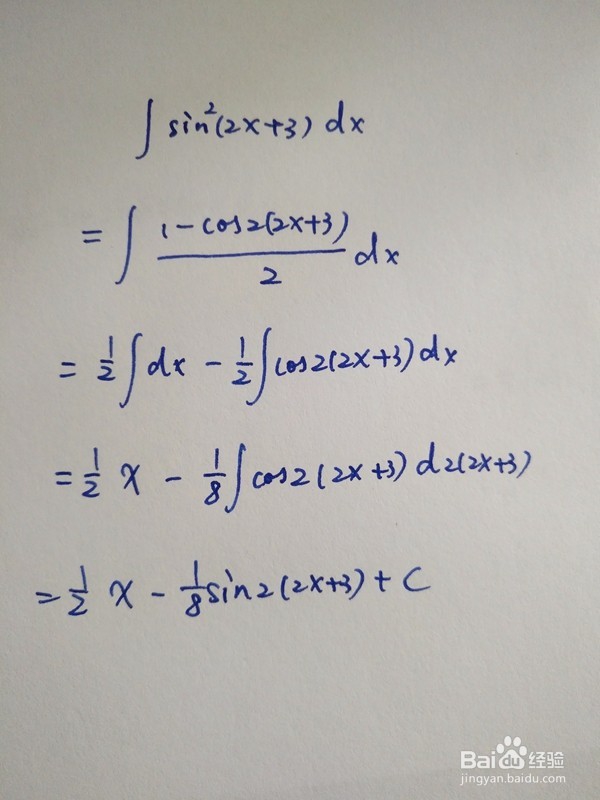 ∫ sin²(2x+3) dx
= ∫ (1-cos2(2x+3))/2 dx
= 1/2 ∫ dx - 1/2 ∫ cos2(2x+3) dx
= 1/2 x - 1/8 ∫ cos2(2x+3) d2(2x+3)
= 1/2 x - 1/8 sin2(2x+3) + C
Bai du 经验
jingyan.baidu.com